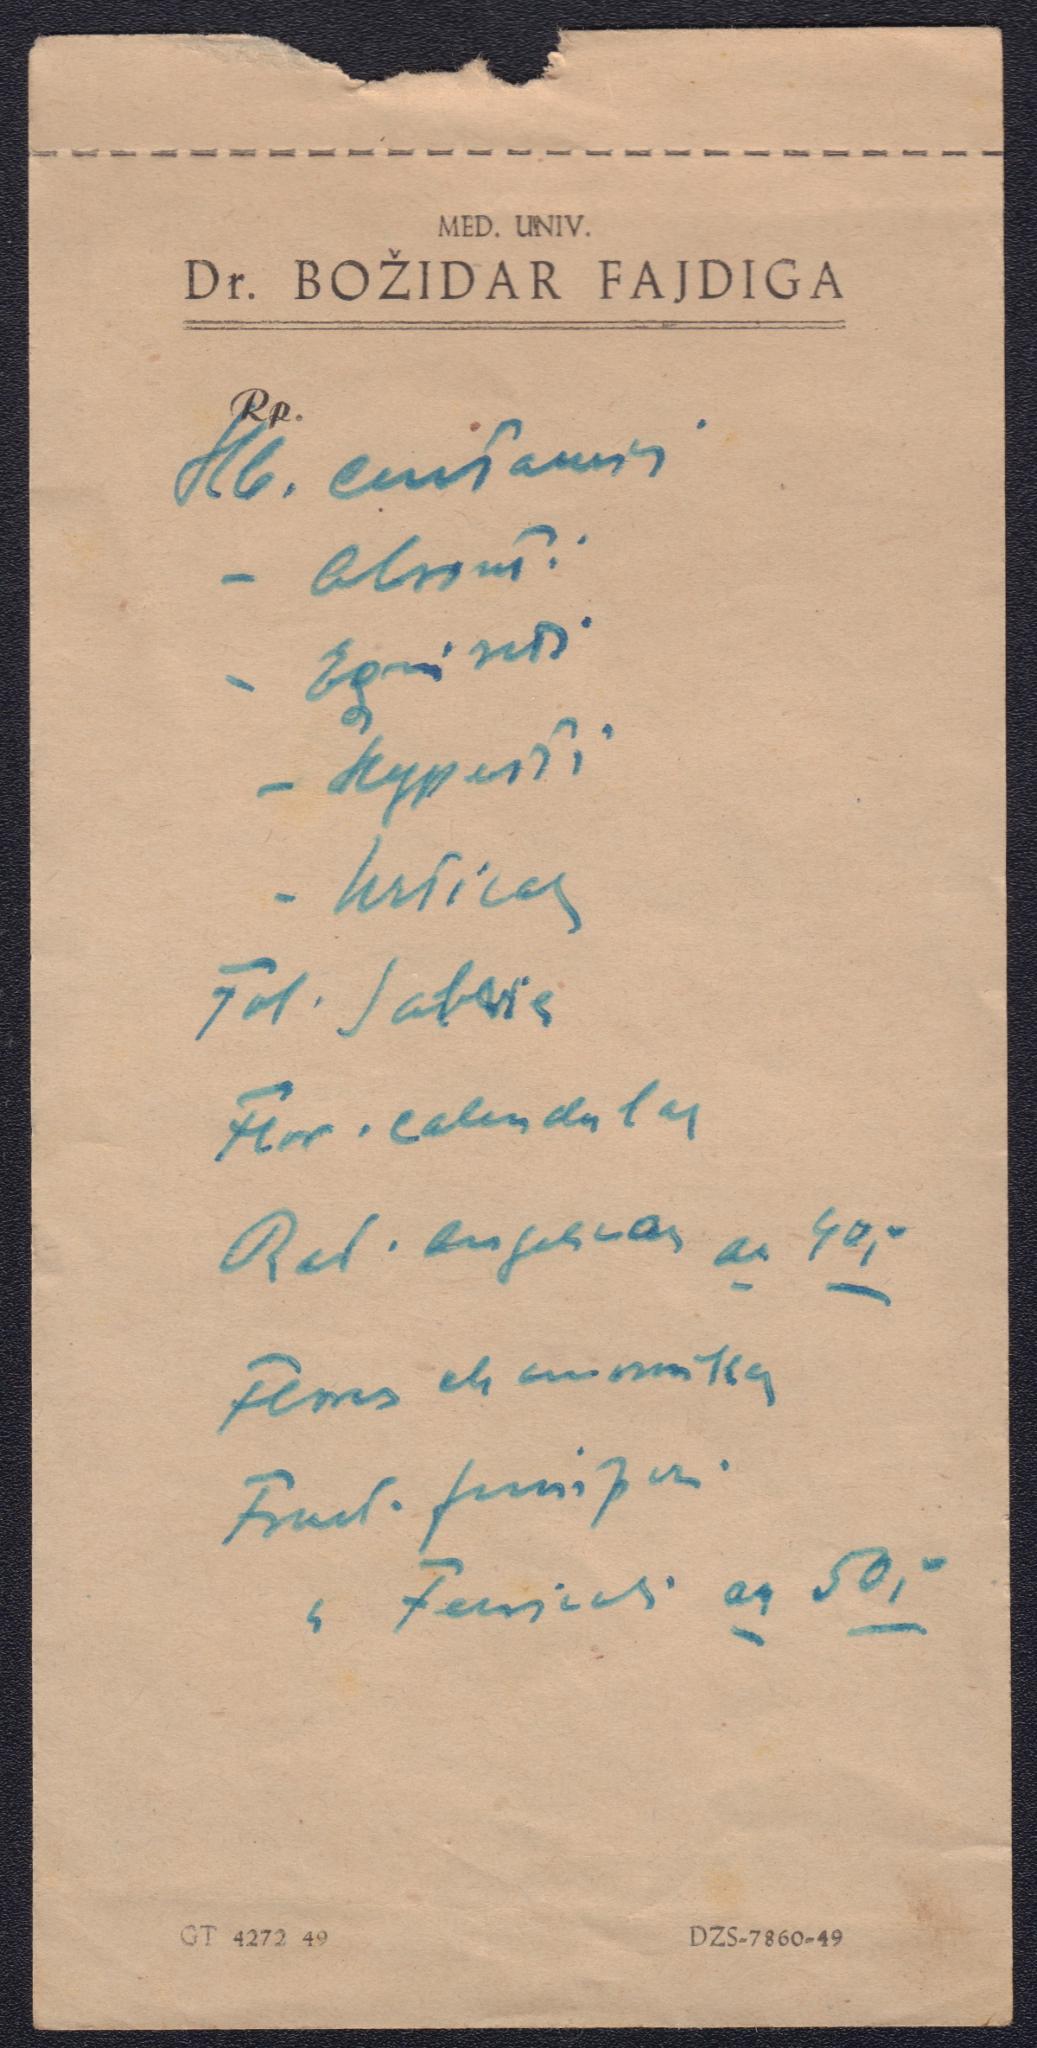 MED. UNIV.
Dr. BOŽIDAR FAJDIGA
Rp.
Hb. centaurii
- Absinti
- Equiseti
- Hyperii
- Urticae
Fol. Salviae
Flor. calendulae
Rad. angelicae aa 40,-
Flores chamomillae
Fruct. juniperi
" Foeniculi aa 50,-
GT 4272 49
DZS-7860-49